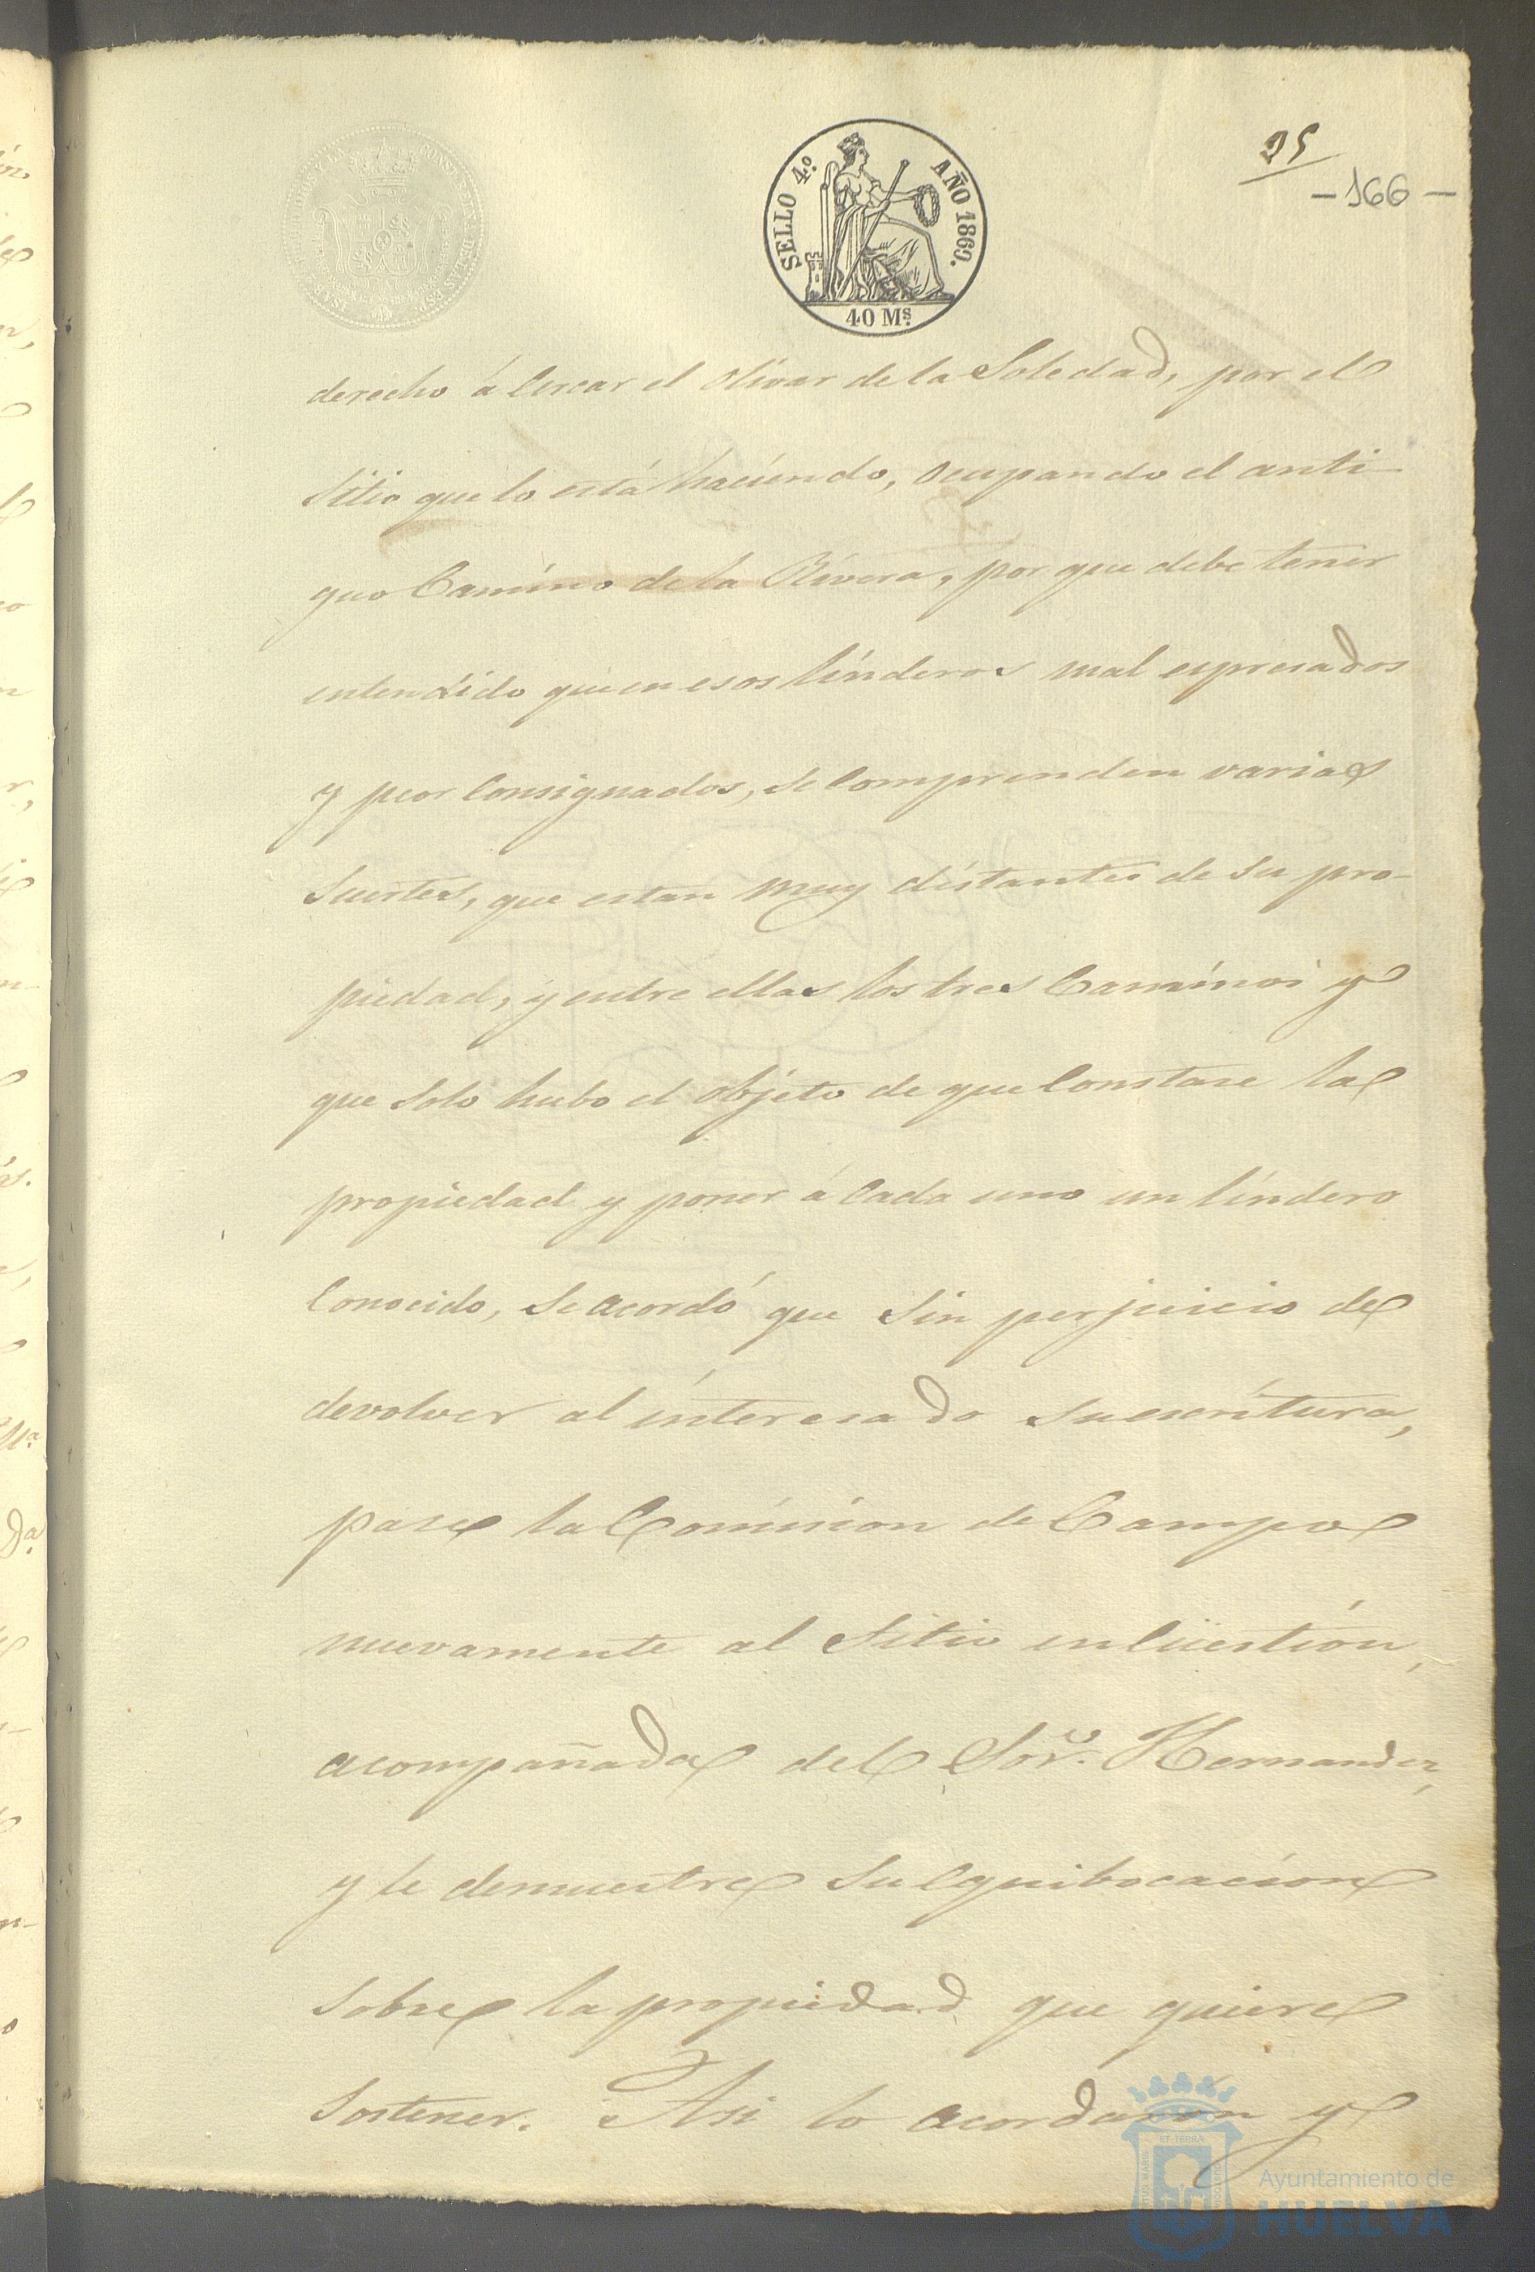 SELLO 4.º AÑO 1869.
40 Ms.
95
-166-
derecho á Cercar el Olívar de la Soledad, por el
Sitio que lo está haciendo, Ocupando el anti-
guo Camino de la Rívera, por que debe tener
entendido que en esos línderos mal espresados
y peor Consignados, se Comprenden varias
Suertes, que estan muy distantes de su pro-
piedad, y entre ellas los tres Caminos y
que solo hubo el objeto de que Constase la
propiedad y poner á Cada uno un líndero
Conocido, se acordó que sin perjuicio de
devolver al interesado su escritura,
pase la Comision de Campo
nuevamente al Sitio en Cüestión,
acompañada del Sor. Hernandez,
y le demuestre su equibocacion
sobre la propiedad que quiere
Sostener. Asi lo acordaron y
Ayuntamiento de
HUELVA